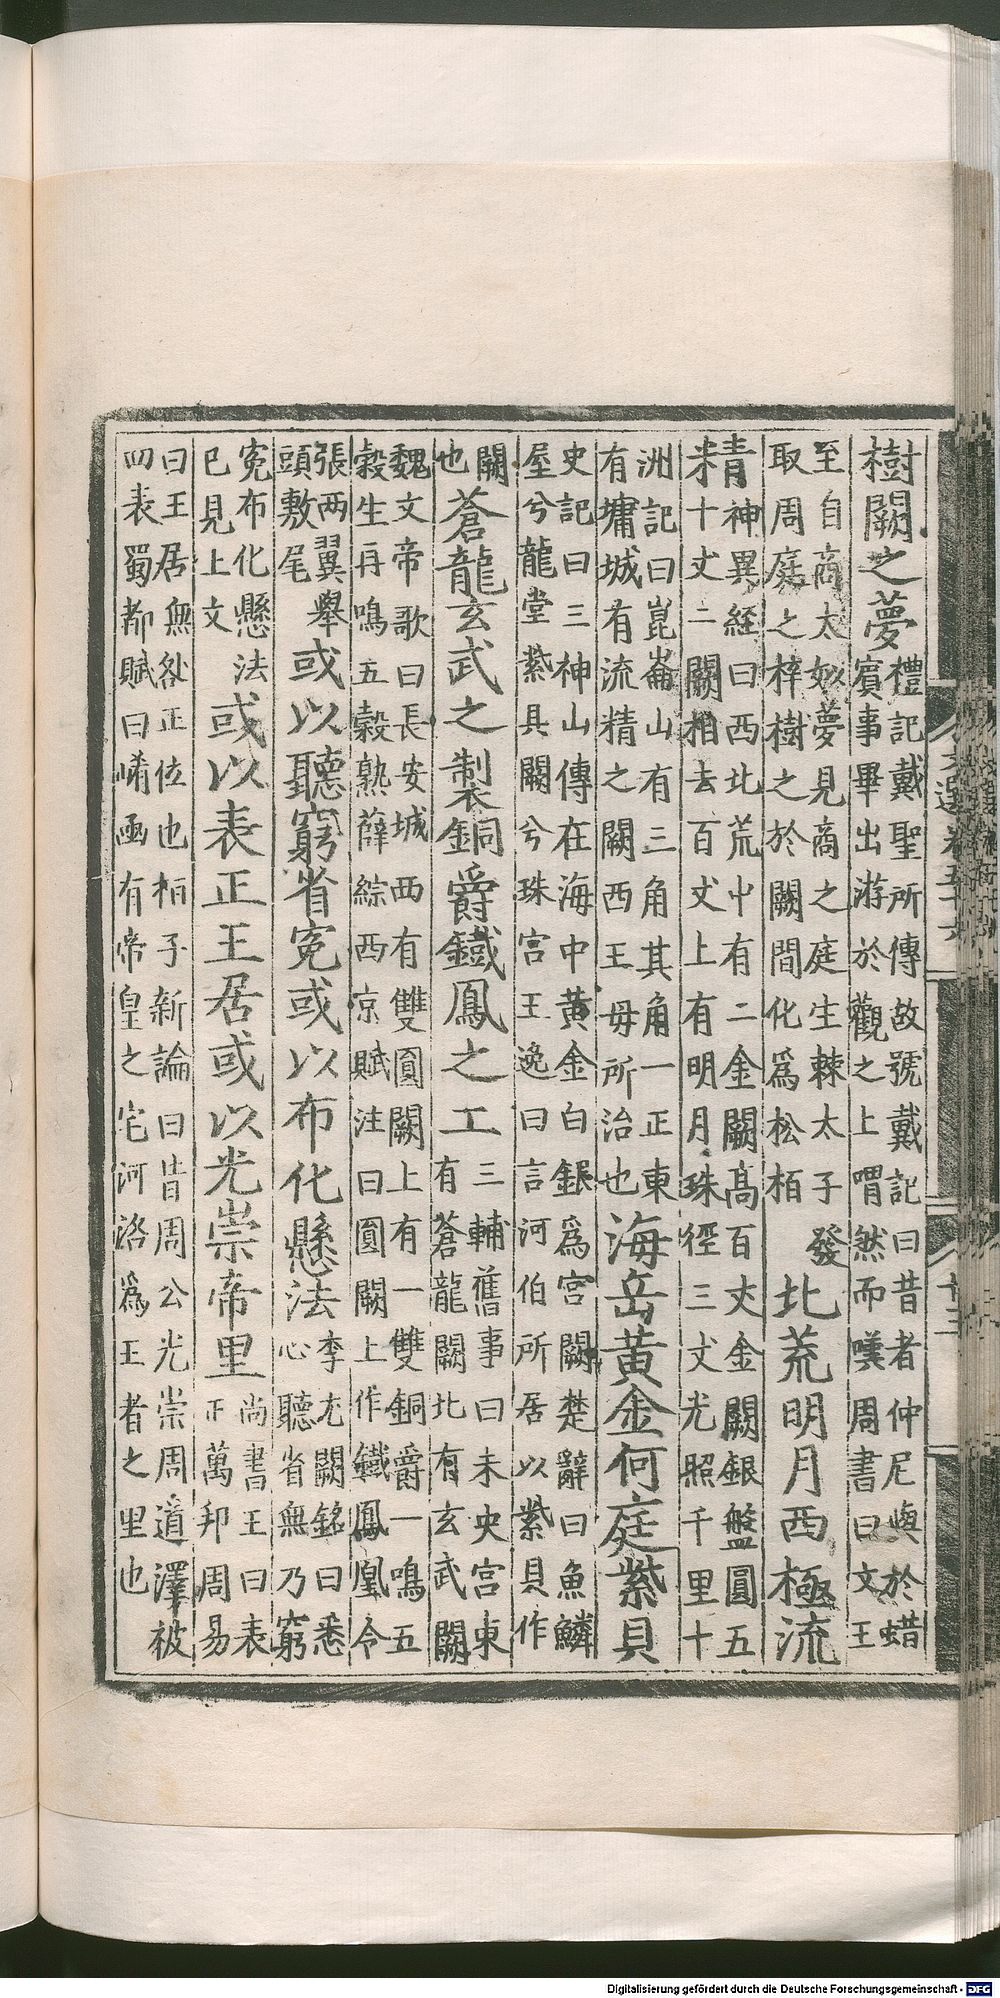 樹闕之夢禮記戴聖所傳故號戴記曰昔者仲尼與於蜡
賓事畢出游於觀之上喟然而嘆周書曰文王
至自商太姒夢見商之庭生棘太子發
取周庭之梓樹之於闕間化爲松栢北荒明月西極流
精神異經曰西北荒中有二金闕高百丈金闕銀盤圓五
十丈二闕相去百丈上有明月珠徑三丈光照千里十
洲記曰崑崙山有三角其角一正東
有墉城有流精之闕西王母所治也海岳黃金何庭紫貝
史記曰三神山傳在海中黃金白銀爲宮闕楚辭曰魚鱗
屋兮龍堂紫貝闕兮珠宮王逸曰言河伯所居以紫貝作
闕
也蒼龍玄武之製銅爵鐵鳳之工三輔舊事曰未央宮東
有蒼龍闕北有玄武闕
魏文帝歌曰長安城西有雙圓闕上有一雙銅爵一鳴五
穀生再鳴五穀熟薛綜西京賦注曰圓闕上作鐵鳳凰令
張兩翼舉
頭敷尾或以聽窮省寃或以布化懸法李尤闕銘曰悉
心聽省無乃窮
寃布化懸法
已見上文或以表正王居或以光崇帝里尚書王曰表
正萬邦周易
曰王居無咎正位也桓子新論曰昔周公光崇周道澤被
四表蜀都賦曰崤函有帝皇之宅河洛爲王者之里也
文選卷五十六
十三
Digitalisierung gefördert durch die Deutsche Forschungsgemeinschaft - DFG